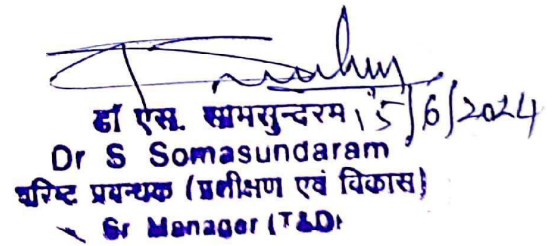 डॉ एस. सोमसुन्दरम 15/6/2024
Dr S Somasundaram
वरिष्ट प्रबन्धक (प्रशीक्षण एवं विकास)
Sr Manager (T&D)